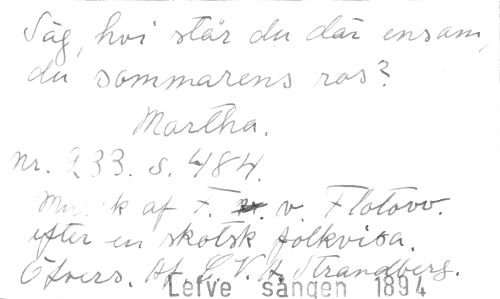 Säg, hvi står du där ensam,
du sommarens ros?
Martha.
nr. 233. s. 484.
Musik af F. v. Flotow.
efter en skotsk folkvisa.
Öfvers. Af C. V. A. Strandberg.
Lefve sången 1894